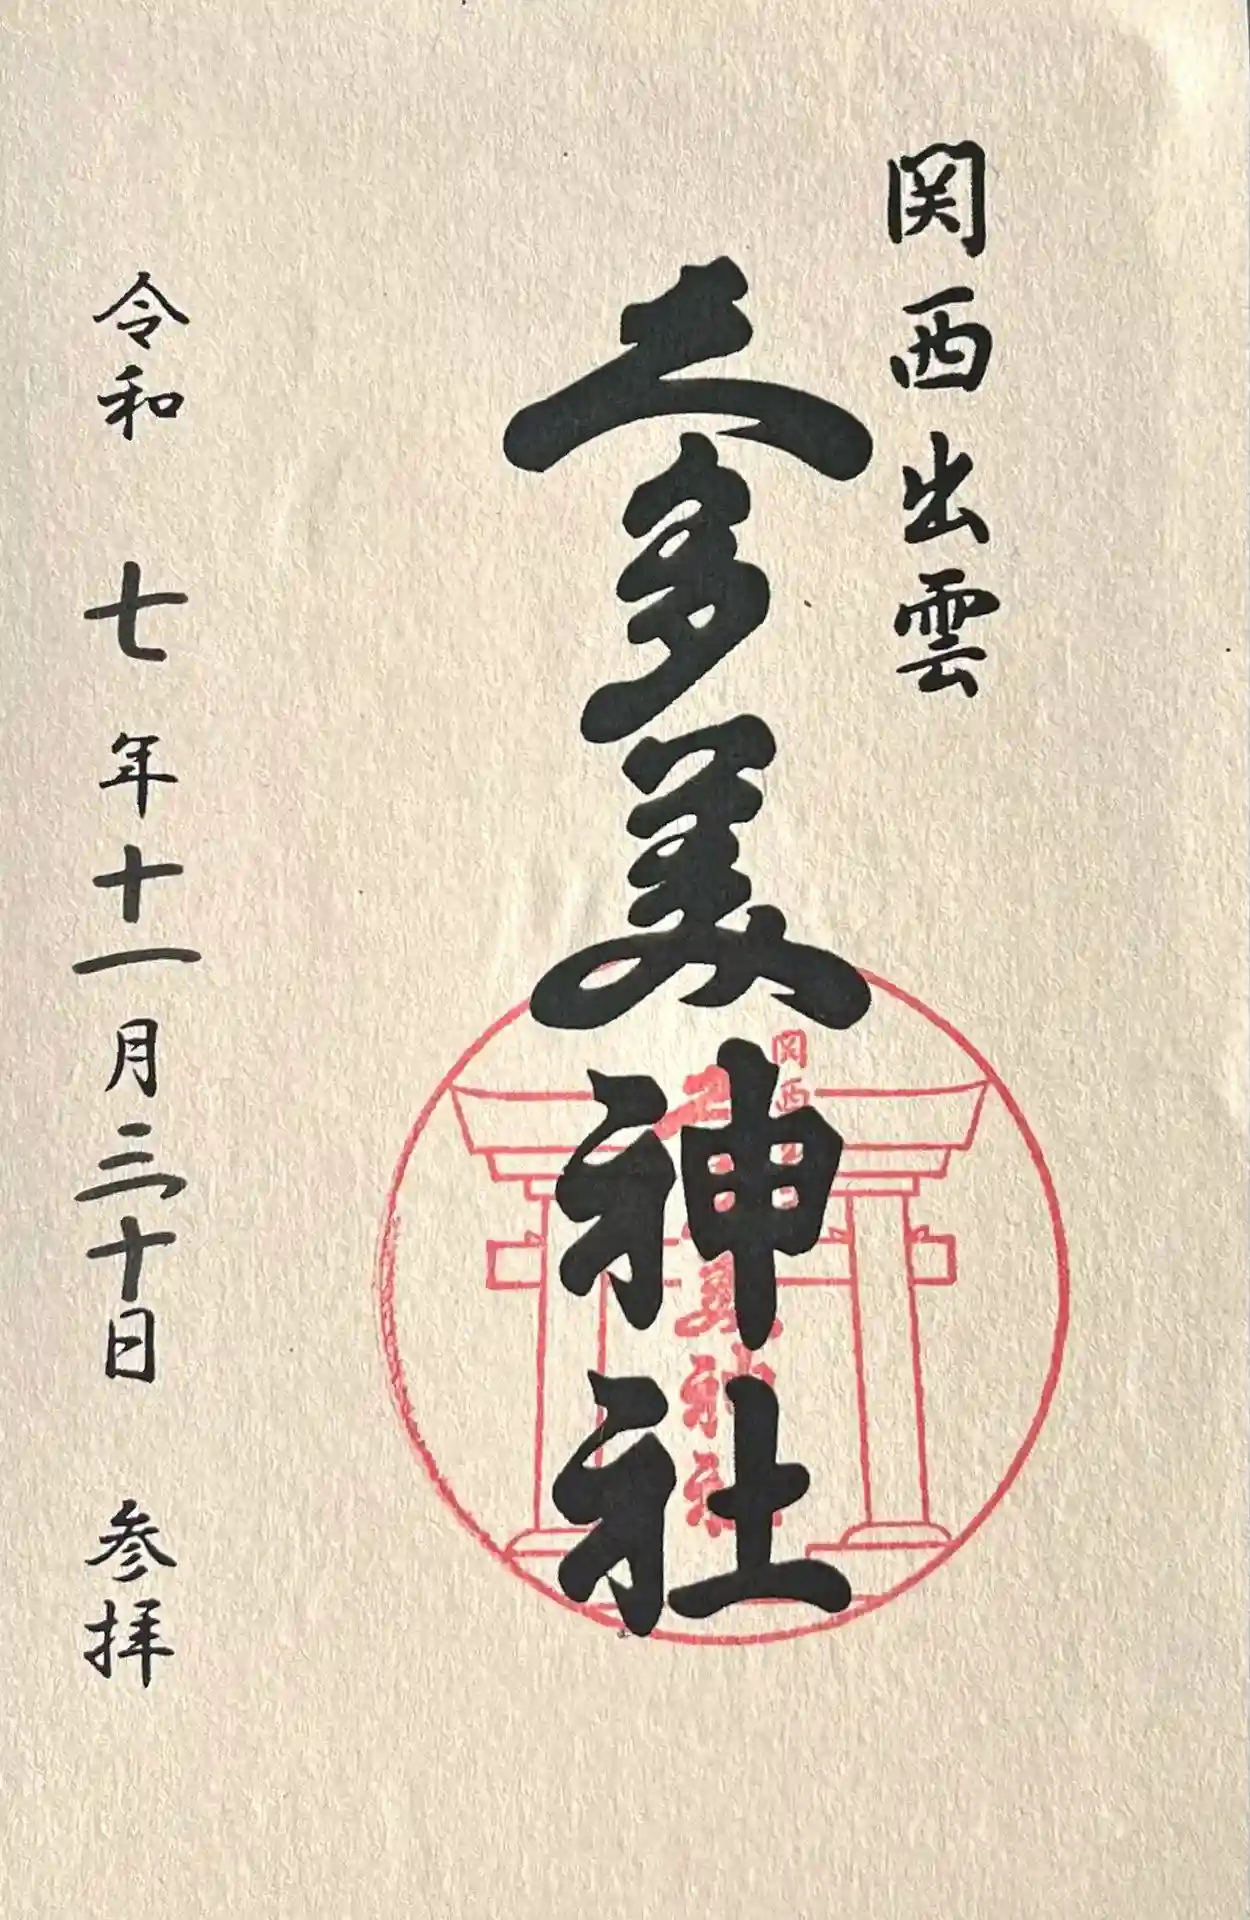 関西出雲
久多美神社
令和 七年十一月三十日 参拝
関西
美神社